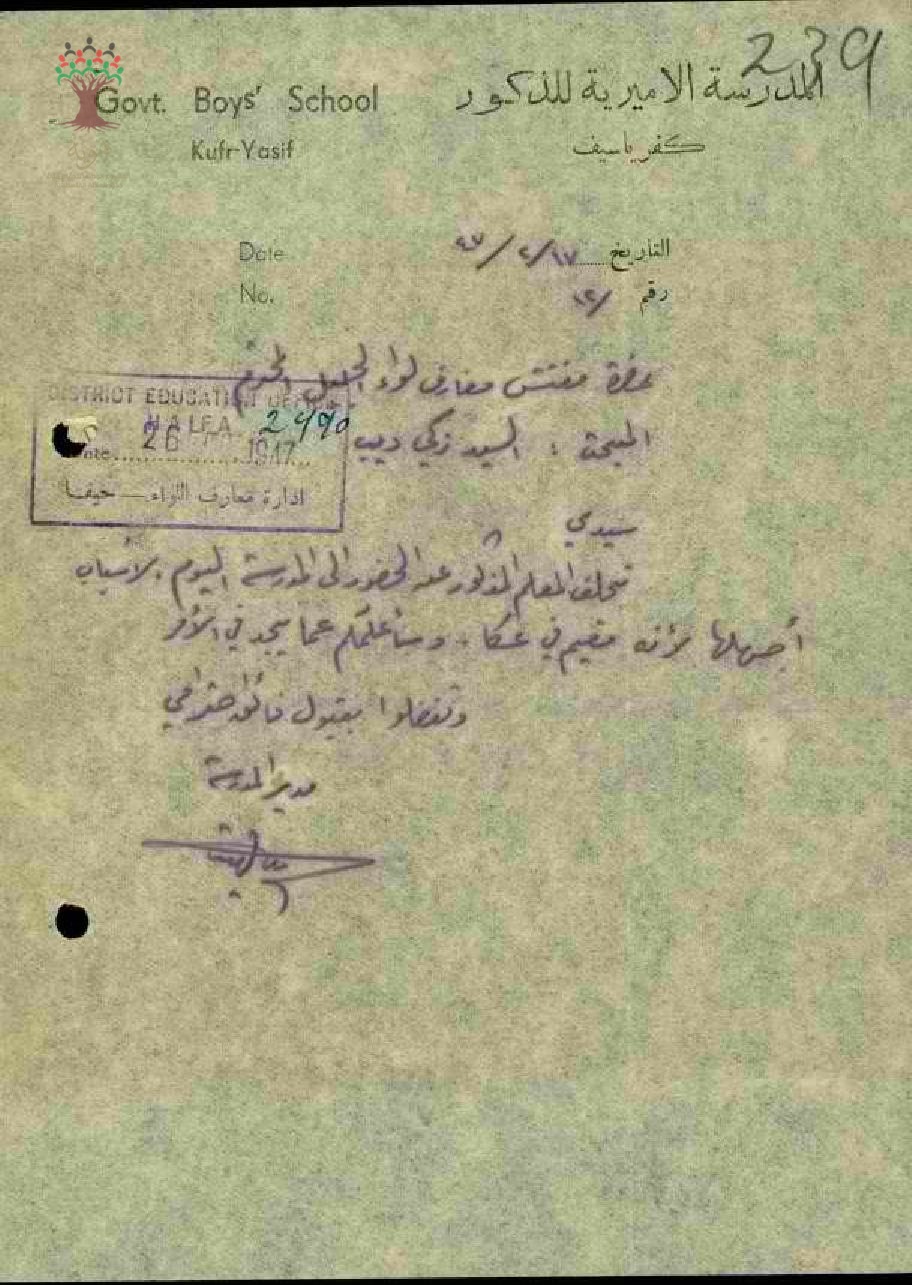 239
Govt. Boys' School
المدرسة الاميرية للذكور
Kufr-Yasif
كفر ياسيف
Date
التاريخ ١٧/٢/٤٧
No.
رقم /١٢
حضرة مفتش معارف لواء الجليل المحترم
المبحث : السيد زكي ديب
DISTRICT EDUCATION OFFICE
HAIFA
2490
Date 26 1947
ادارة معارف اللواء — حيفا
سيدي
تخلف المعلم المذكور عن الحضور الى المدرسة اليوم لأسباب
أجهلها لأنه مقيم في عكا . وسأعلمكم عما يجد في الأمر
وتفضلوا بقبول فائق احترامي
مدير المدرسة